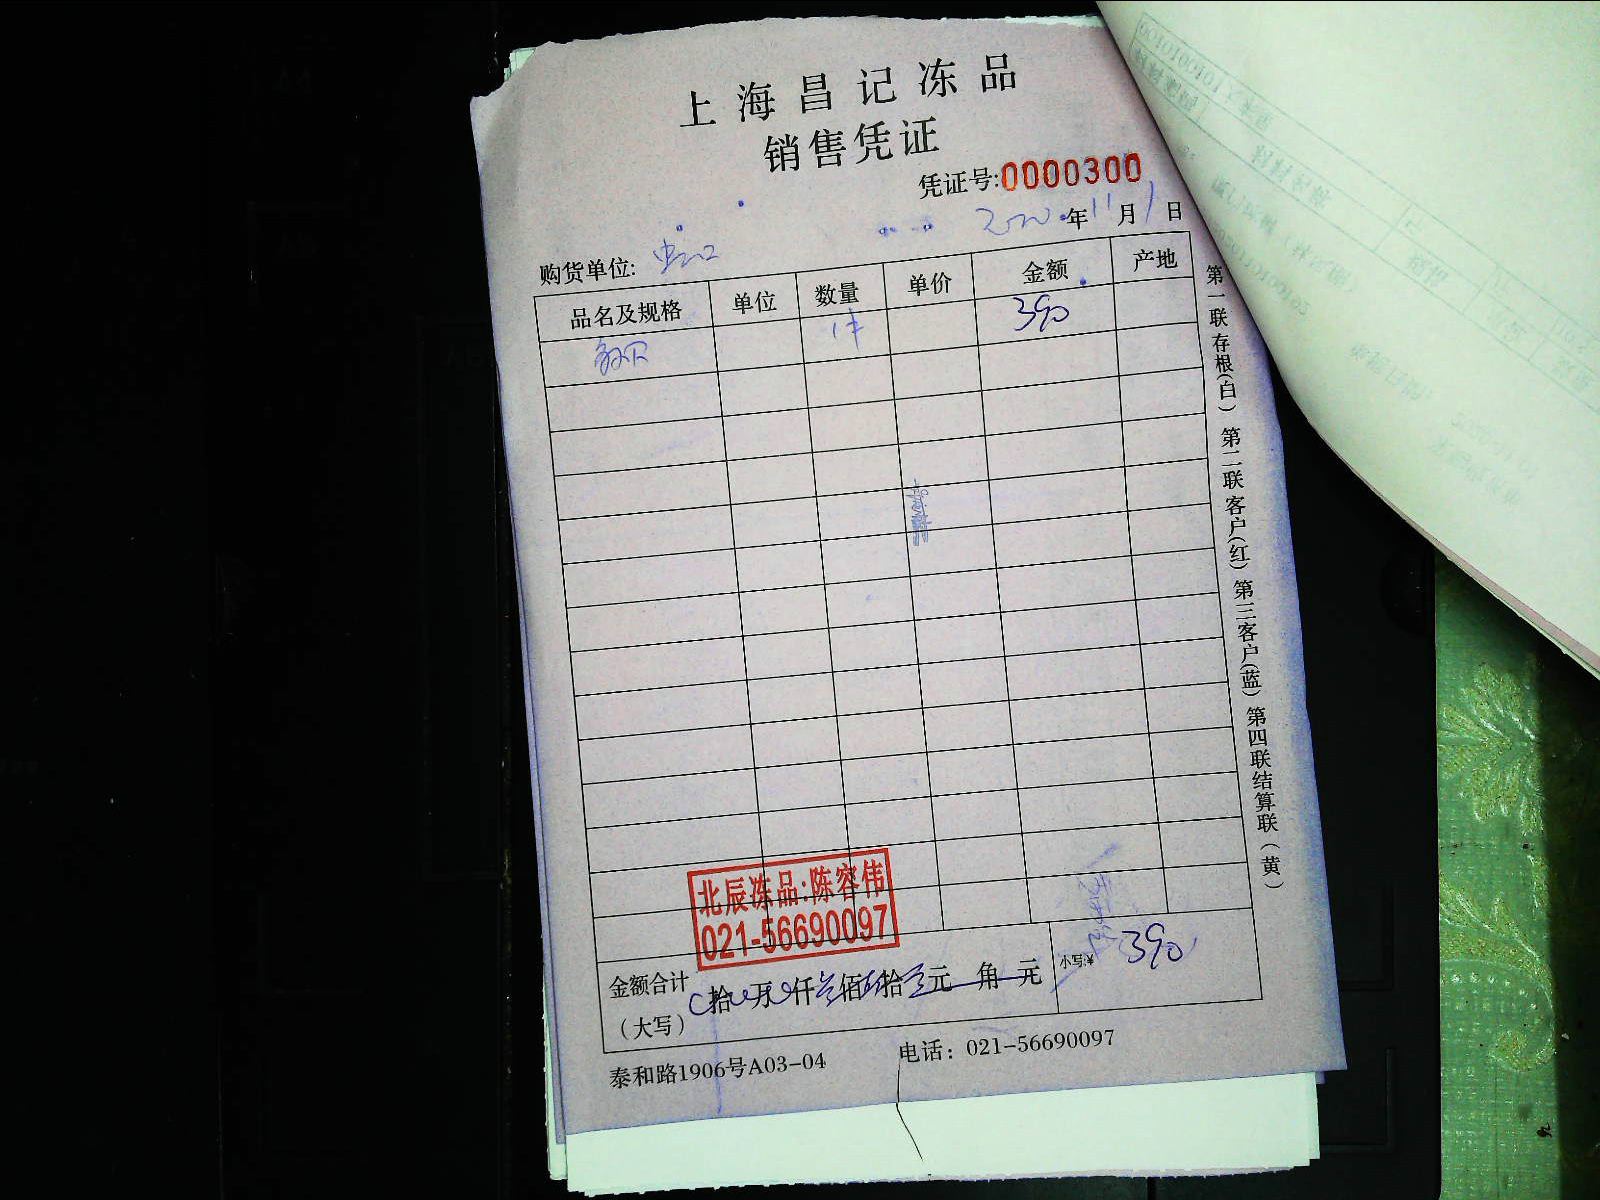 上海昌记冻品
销售凭证
凭证号:0000300
2020年11月1日
购货单位: 虹口
品名及规格 单位 数量 单价 金额 产地
1件 390
北辰冻品:陈容伟
021-56690097
金额合计(大写) 拾 万 仟 佰 拾 元 角 元 小写:¥ 390
泰和路1906号A03-04 电话: 021-56690097
第一联存根(白) 第二联客户(红) 第三客户(蓝) 第四联结算联(黄)